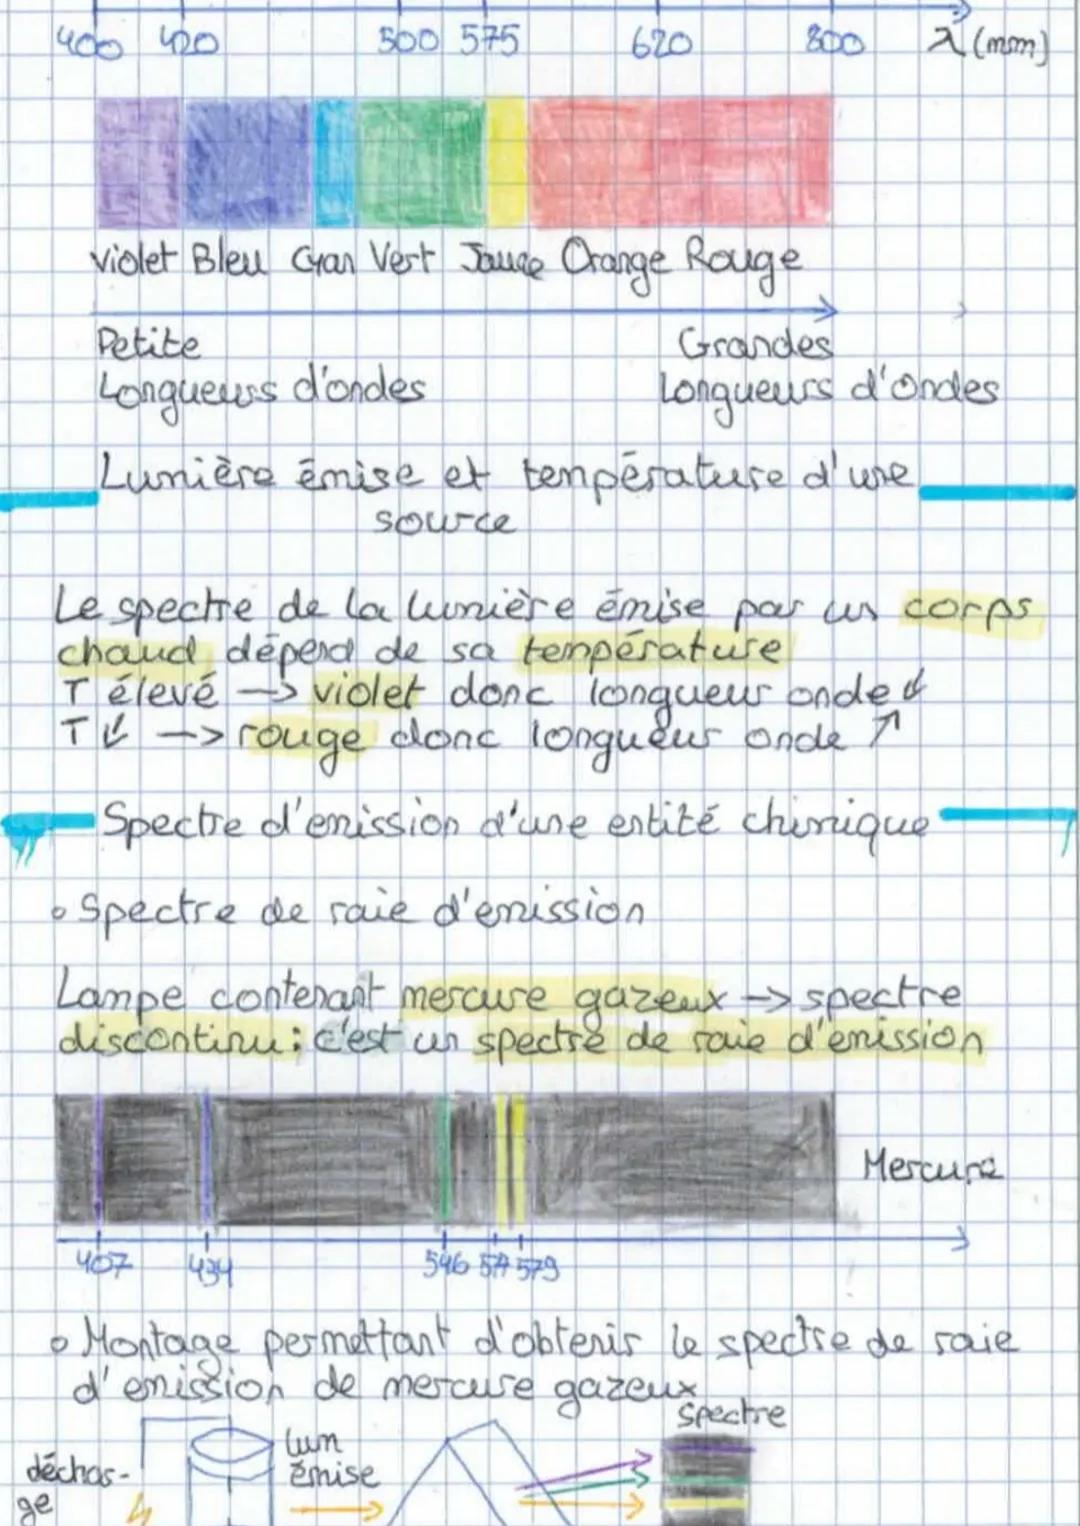 400 420 500 575 620 800 λ (mm)
Violet Bleu Cyan Vert Jaune Orange Rouge
Petite Grandes
Longueurs d'ondes Longueurs d'ondes
Lumière émise et température d'une
source
Le spectre de la lumière émise par un corps
chaud dépend de sa température
T élevé → violet donc longueur onde ↓
T ↓ → rouge donc longueur onde ↗
Spectre d'emission d'une entité chimique
• Spectre de raie d'emission
Lampe contenant mercure gazeux → spectre
discontinu : c'est un spectre de raie d'émission
Mercure
407 434 546 577 579
• Montage permettant d'obtenir le spectre de raie
d'emission de mercure gazeux
spectre
lum
déchar- émise
ge